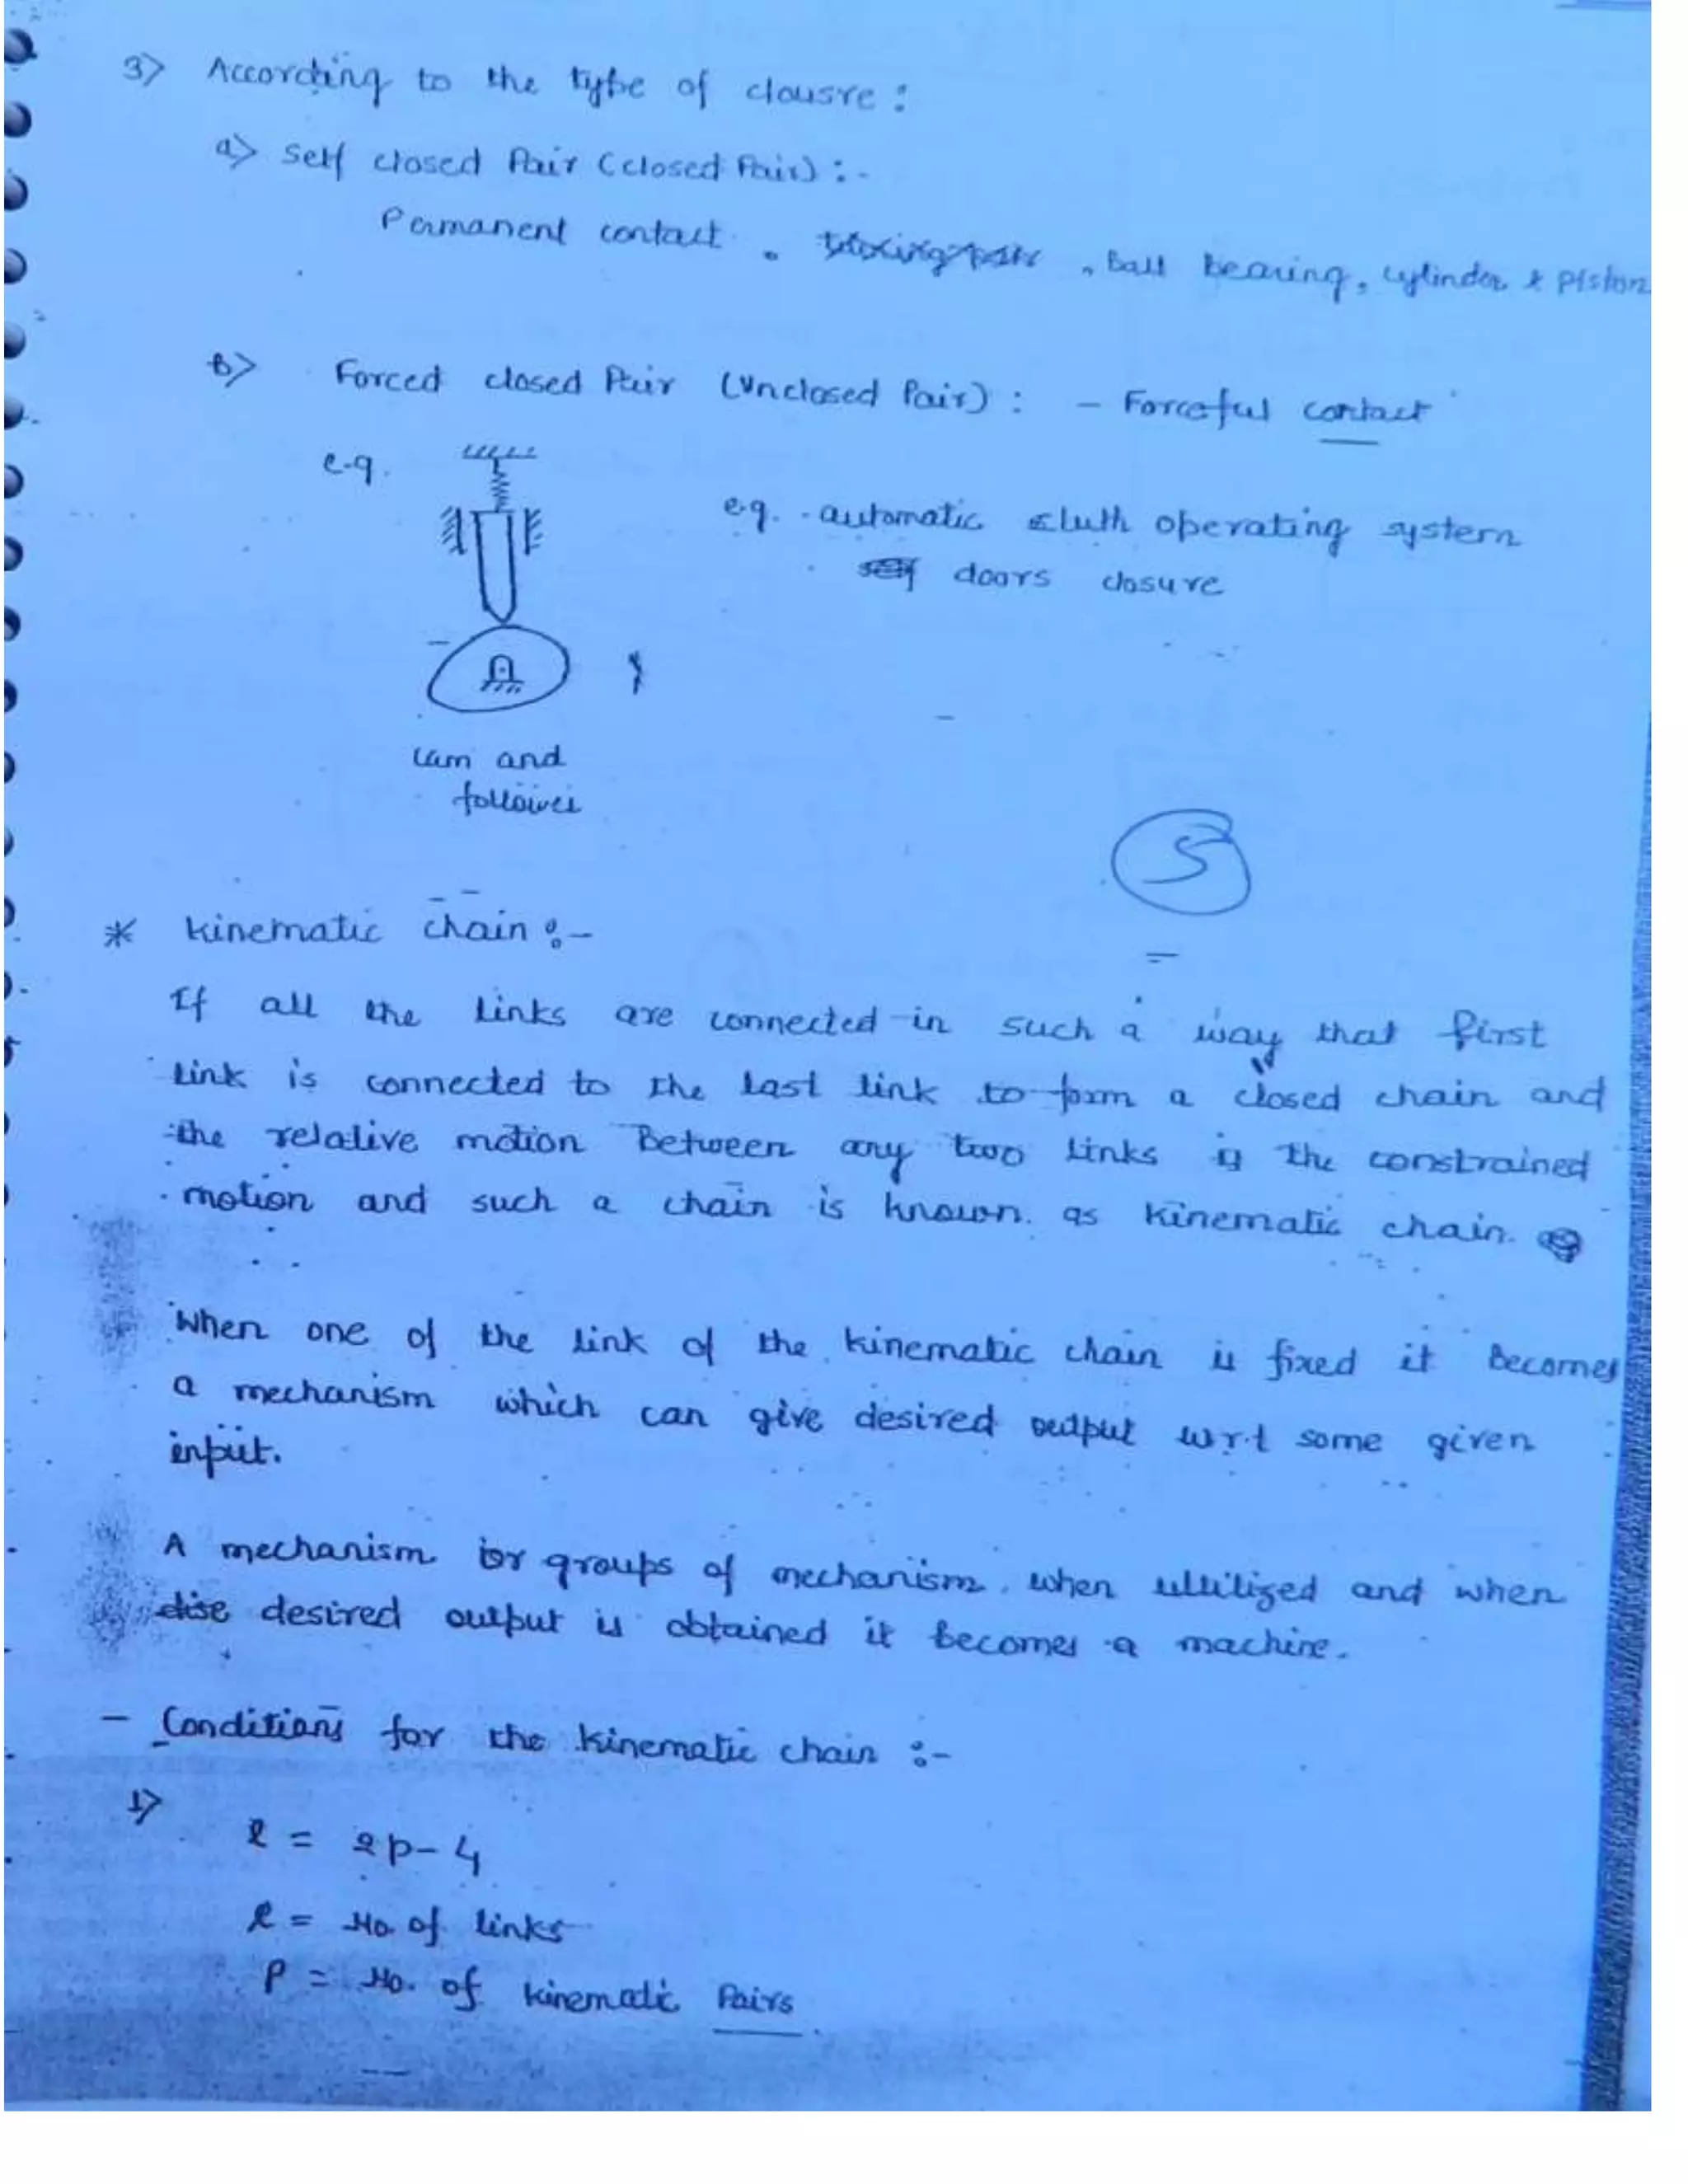 3> According to the type of clousre :
a> Self closed Pair (closed Pair) :-
Permanent contact . , Ball bearing, cylinder & Piston
b> Forced closed Pair (Unclosed Pair) : - Forceful contact
e.g.
e.g. - automatic cluth operating system
doors closure
Cam and
follower
5
* kinematic chain :-
If all the links are connected in such a way that first
link is connected to the last link to form a closed chain and
the relative motion Between any two links is the constrained
motion and such a chain is known as kinematic chain.
When one of the link of the kinematic chain is fixed it Becomes
a mechanism which can give desired output w.r.t some given
input.
A mechanism or groups of mechanism when utilized and when
desired output is obtained it becomes a machine.
- Conditions for the kinematic chain :-
1>
l = 2p-4
l = No. of links
P = No. of kinematic Pairs